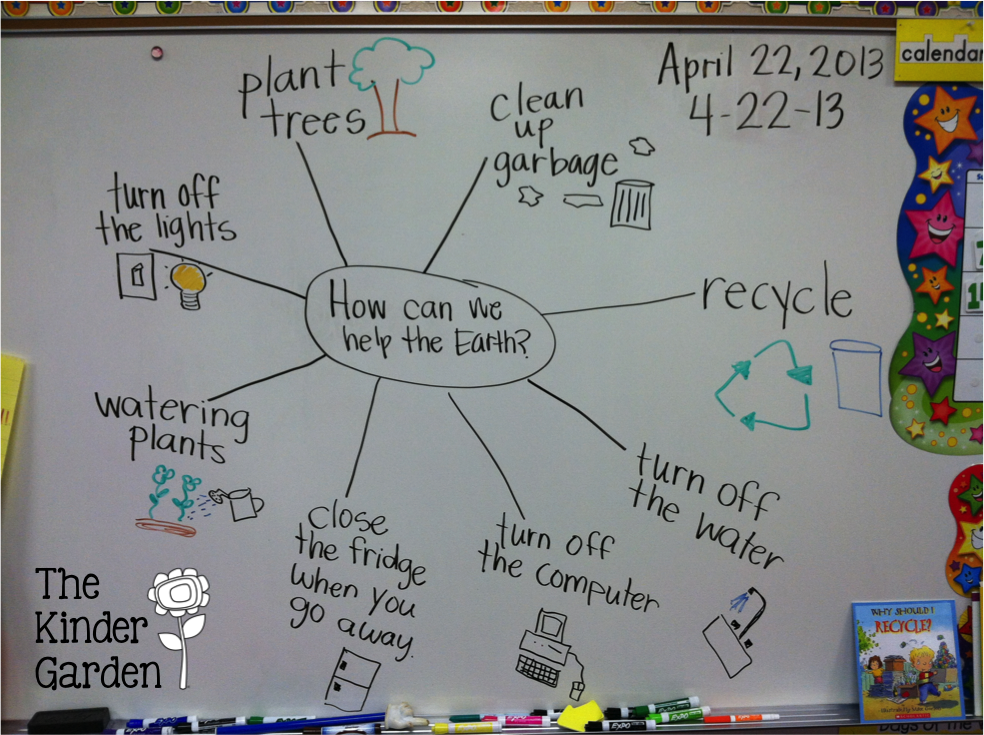 plant
trees
clean
up
garbage
April 22, 2013
4-22-13
calendar
turn off
the lights
How can we
help the Earth?
recycle
watering
plants
turn off
the water
close
the fridge
when you
go away.
turn off
the computer
The
Kinder
Garden
WHY SHOULD I
RECYCLE?
SCHOLASTIC
EXPO
EXPO
EXPO
Days of the